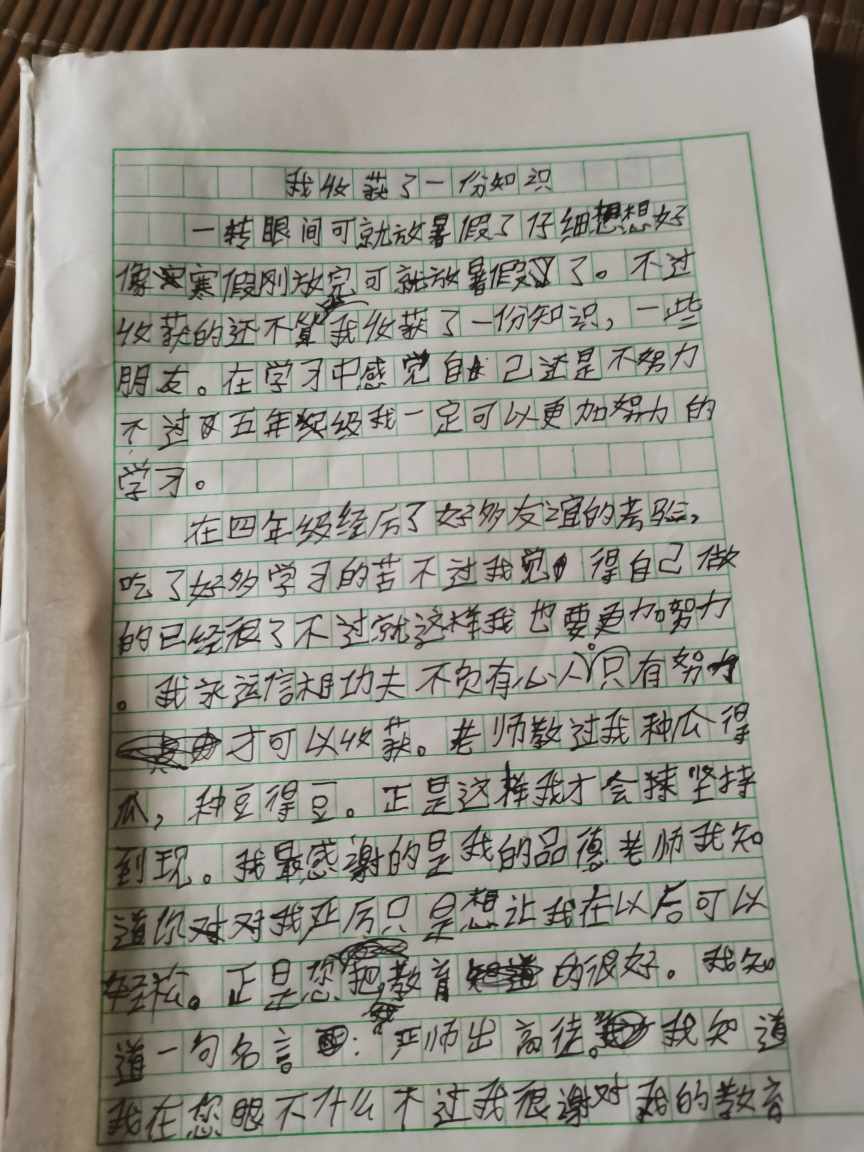 我收获了一份知识
一转眼间可就放暑假了仔细想想好
像寒假刚放完可就放暑假了。不过
收获的还不算我收获了一份知识，一些
朋友。在学习中感觉自己还是不努力
不过五年级我一定可以更加努力的
学习。
在四年级经历了好多友谊的考验，
吃了好多学习的苦不过我觉得自己做
的已经很了不过就这样我也要更加努力
。我永远信相功夫不负有心人。只有努力
才可以收获。老师教过我种瓜得
瓜，种豆得豆。正是这样我才会坚持
到现。我最感谢的是我的品德老师我知
道你对对我严厉只是想让我在以后可以
轻松。正是您把我教育的很好。我知
道一句名言：“严师出高徒。”我知道
我在您眼不什么不过我很谢对我的教育